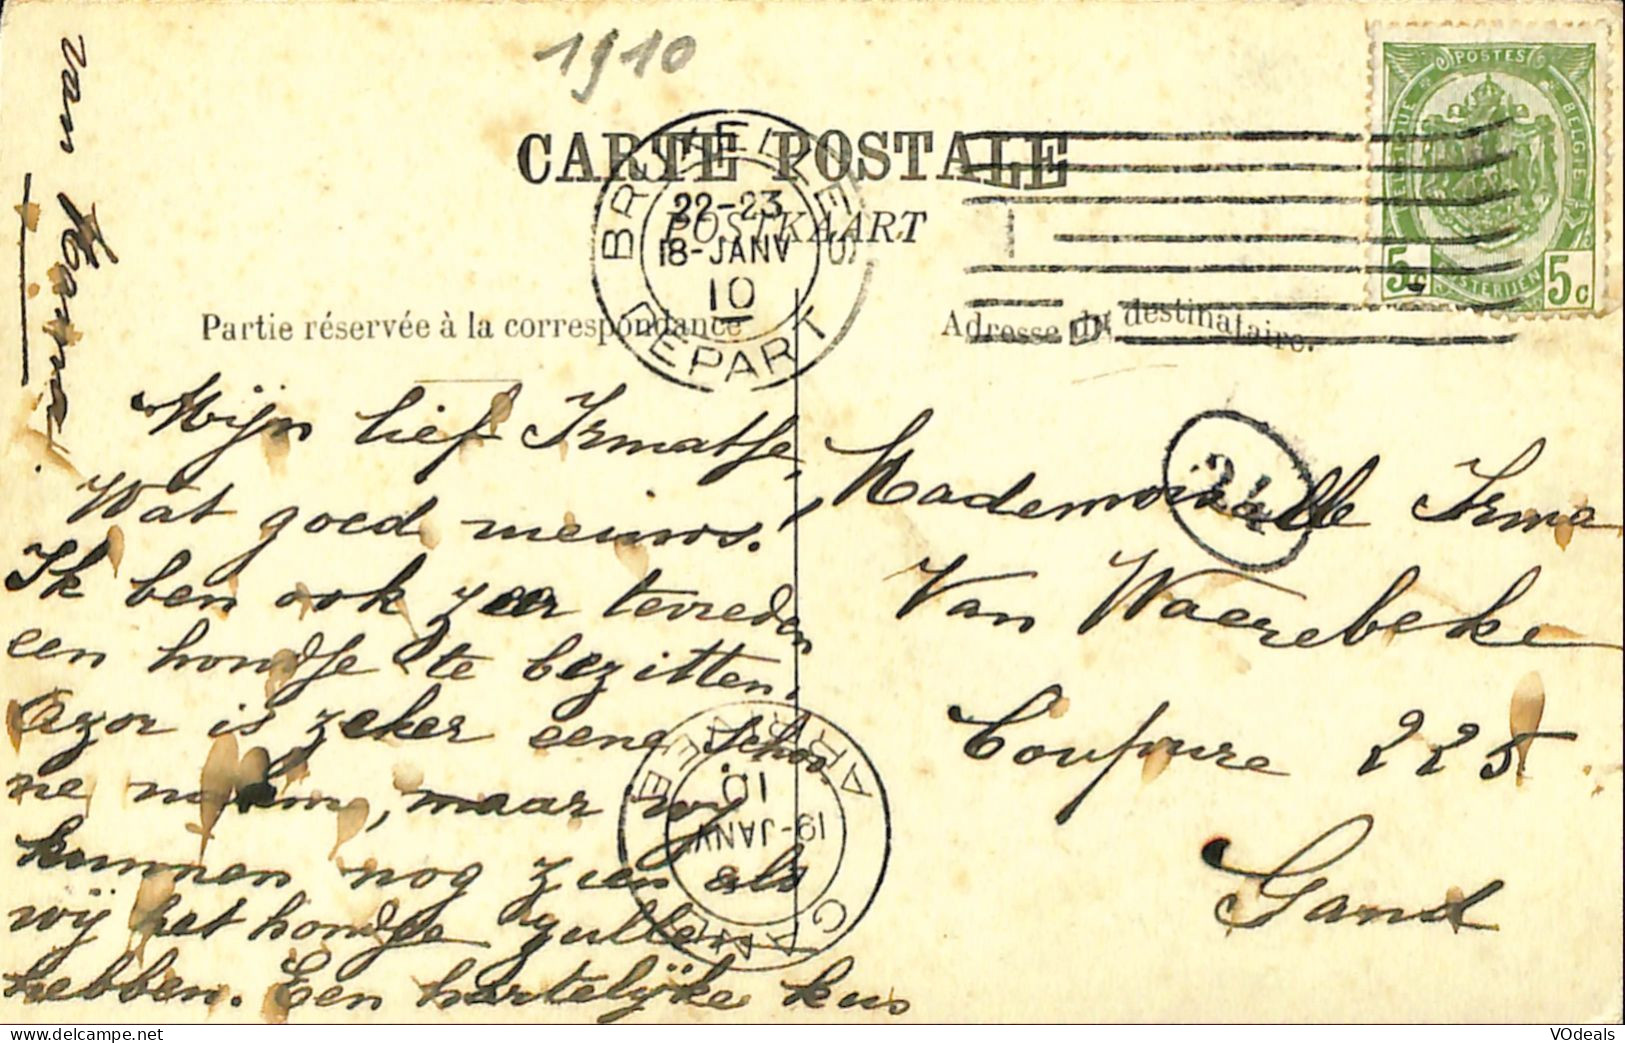 1910
CARTE POSTALE
POSTKAART
BRUXELLES
22-23
18-JANV
10
DEPART
POSTES
BELGIQUE
BELGIË
POSTERIJEN
5c 5c
Partie réservée à la correspondance
Adresse du destinataire.
Mijn lief Irmatje,
Wat goed nieuws!
Ik ben ook zeer tevreden
een hondje te bezitten.
Azor is zeker eene schoo
ne naam, maar wij
kunnen nog zien als
wij het hondje zullen
hebben. Een hartelijke kus
van
24
Mademoiselle Irma
Van Waerebeke
Coupure 225
Gand
GAND
19-JANV
10
ARRIVEE
www.delcampe.net
VOdeals